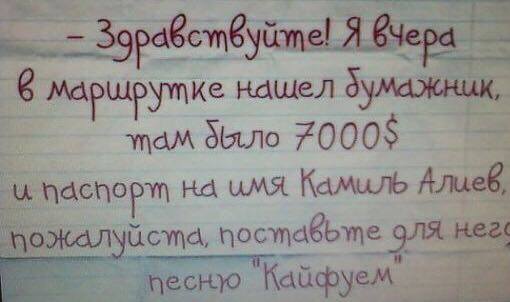 - Здравствуйте! Я вчера
в маршрутке нашел бумажник,
там было 7000$
и паспорт на имя Камиль Алиев,
пожалуйста, поставьте для него
песню "Кайфуем"